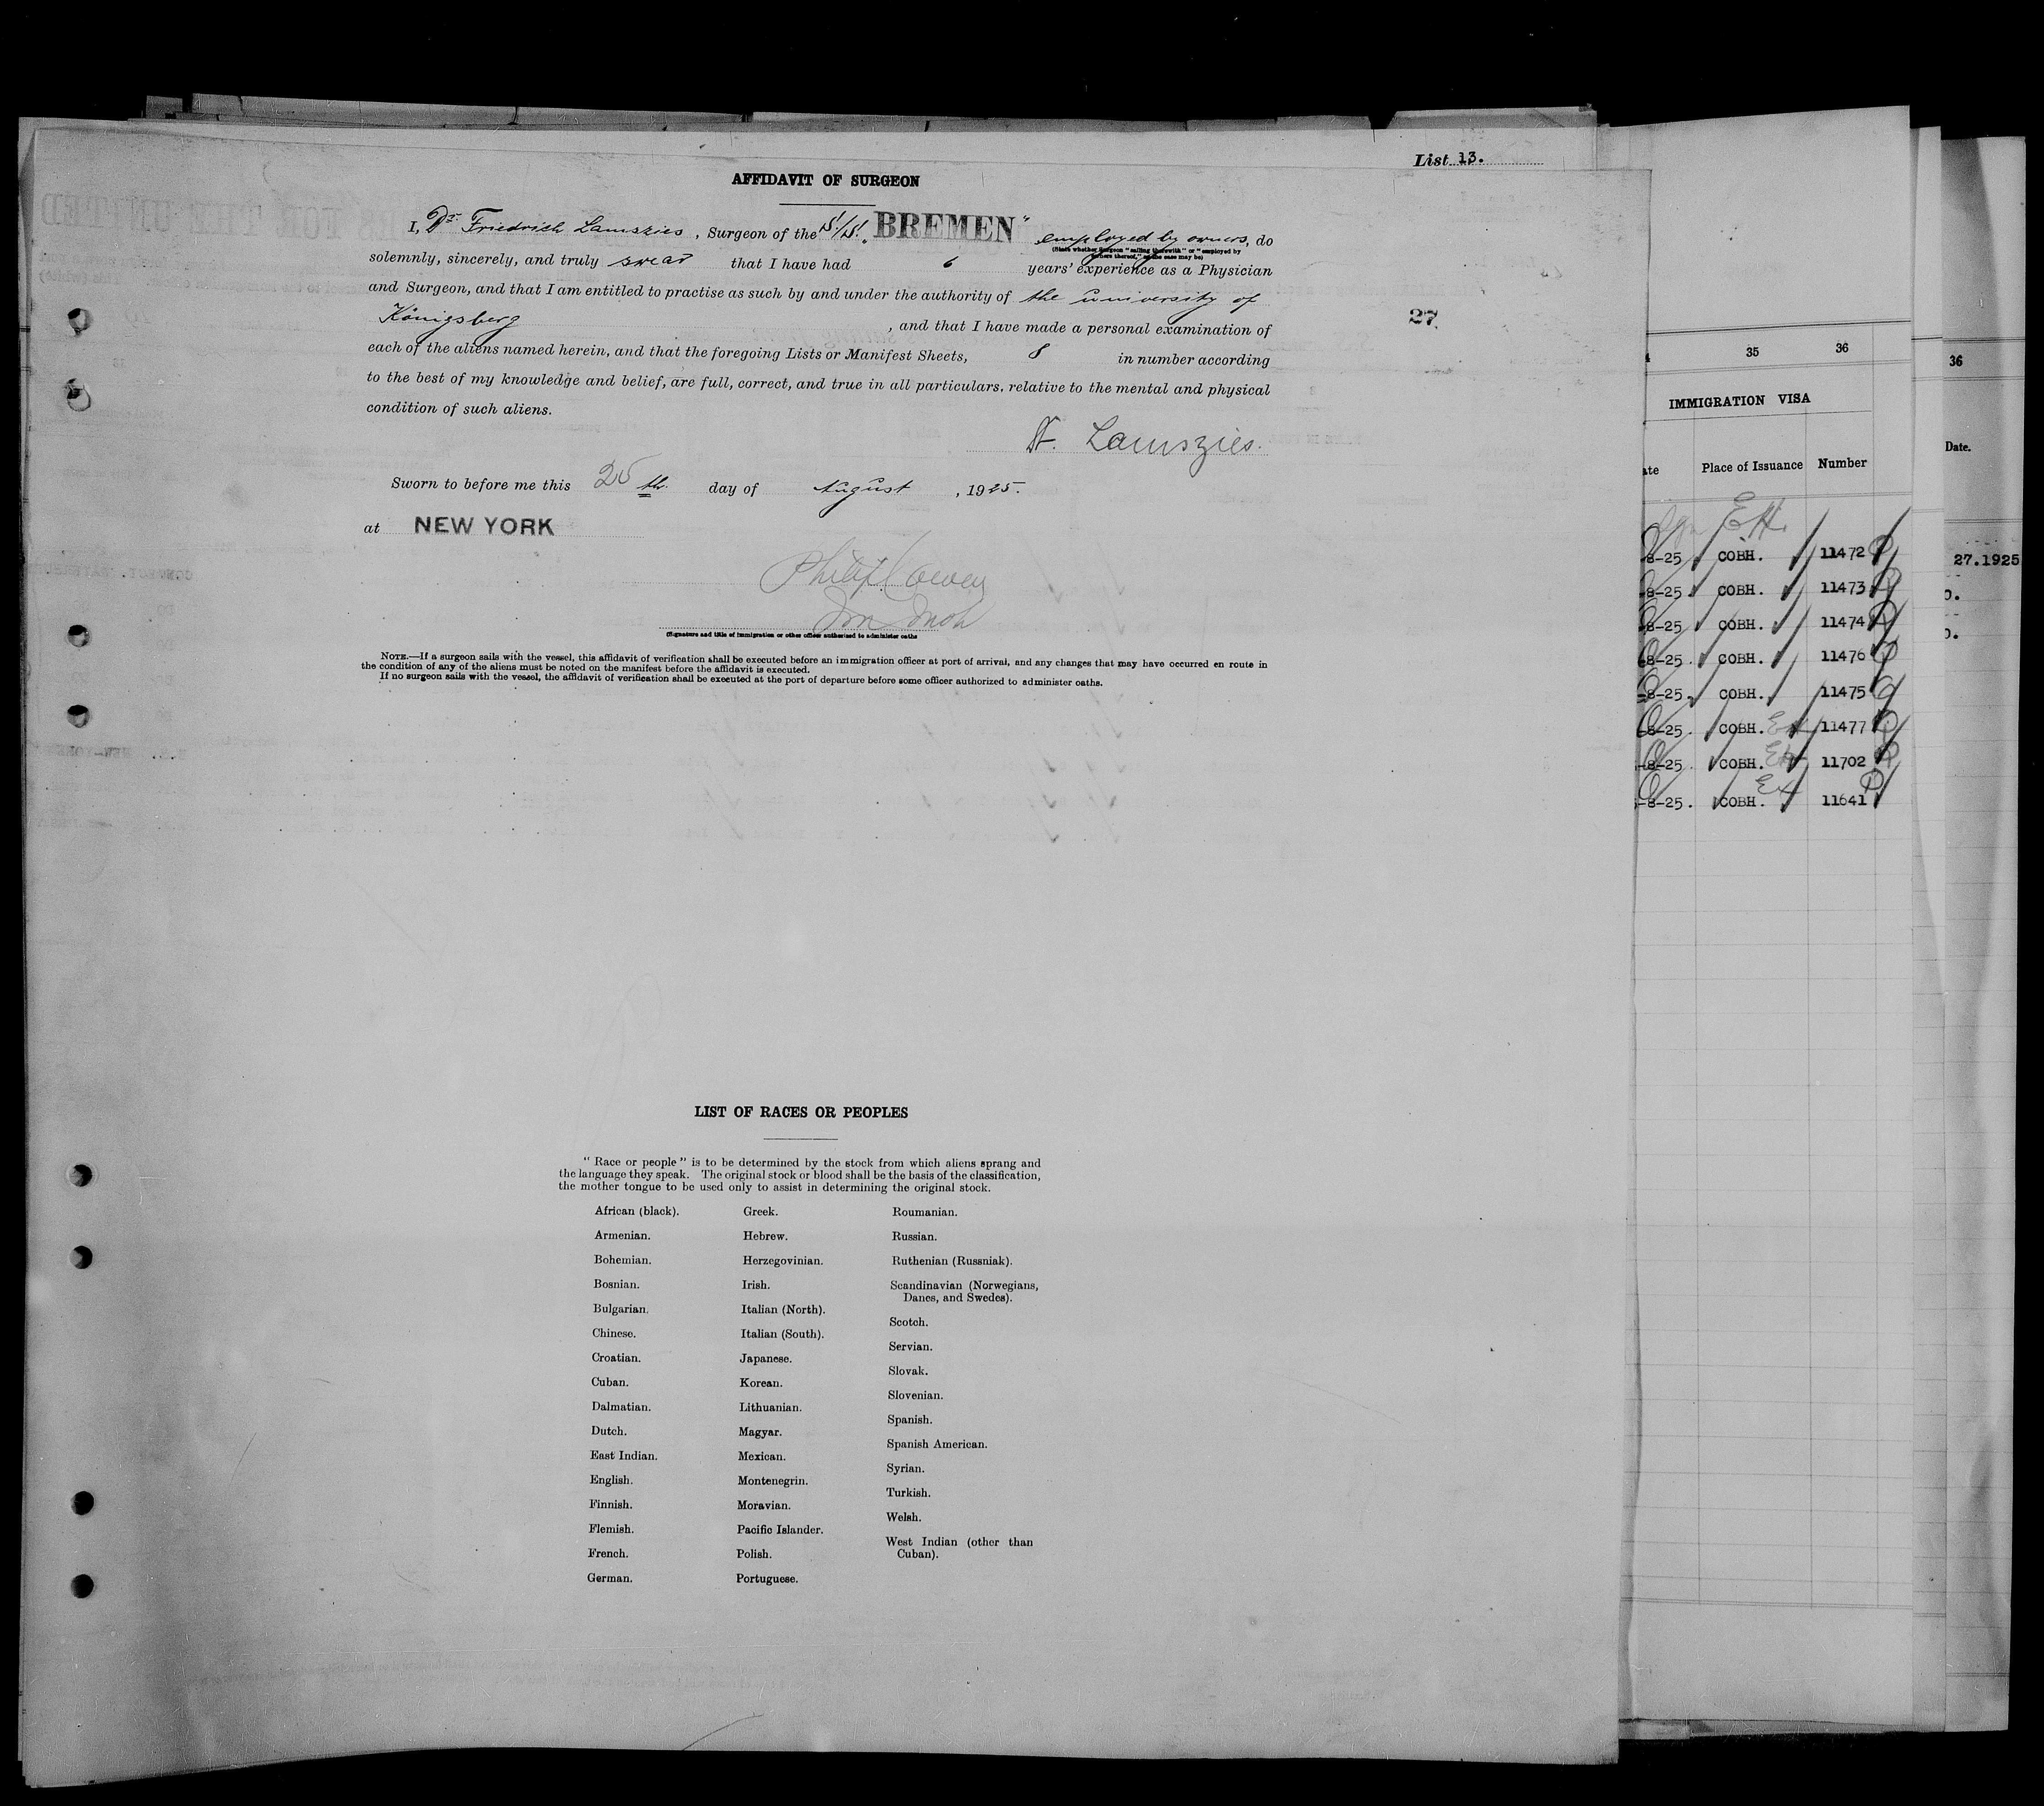 List 13.
AFFIDAVIT OF SURGEON
I, Dr. Friedrich Lamszies, Surgeon of the S/S. „BREMEN“ employed by owners, do
(State whether Surgeon "sailing therewith" or "employed by
owners thereof," as the case may be)
solemnly, sincerely, and truly swear that I have had 6 years' experience as a Physician
and Surgeon, and that I am entitled to practise as such by and under the authority of the university of
Königsberg, and that I have made a personal examination of
27
each of the aliens named herein, and that the foregoing Lists or Manifest Sheets, 8 in number according
to the best of my knowledge and belief, are full, correct, and true in all particulars, relative to the mental and physical
condition of such aliens.
Lamszies.
Sworn to before me this 25th. day of August, 1925.
at NEW YORK
Philip Cowen
(Signature and title of immigration or other officer authorized to administer oaths
NOTE.—If a surgeon sails with the vessel, this affidavit of verification shall be executed before an immigration officer at port of arrival, and any changes that may have occurred en route in
the condition of any of the aliens must be noted on the manifest before the affidavit is executed.
If no surgeon sails with the vessel, the affidavit of verification shall be executed at the port of departure before some officer authorized to administer oaths.
LIST OF RACES OR PEOPLES
"Race or people" is to be determined by the stock from which aliens sprang and
the language they speak. The original stock or blood shall be the basis of the classification,
the mother tongue to be used only to assist in determining the original stock.
African (black).
Armenian.
Bohemian.
Bosnian.
Bulgarian.
Chinese.
Croatian.
Cuban.
Dalmatian.
Dutch.
East Indian.
English.
Finnish.
Flemish.
French.
German.
Greek.
Hebrew.
Herzegovinian.
Irish.
Italian (North).
Italian (South).
Japanese.
Korean.
Lithuanian.
Magyar.
Mexican.
Montenegrin.
Moravian.
Pacific Islander.
Polish.
Portuguese.
Roumanian.
Russian.
Ruthenian (Russniak).
Scandinavian (Norwegians,
Danes, and Swedes).
Scotch.
Servian.
Slovak.
Slovenian.
Spanish.
Spanish American.
Syrian.
Turkish.
Welsh.
West Indian (other than
Cuban).
35 36
IMMIGRATION VISA
ate Place of Issuance Number
E.H.
-8-25 COBH. 11472
-8-25 COBH. 11473
-8-25 COBH. 11474
-8-25. COBH. 11476
-8-25. COBH. 11475
-8-25. COBH. 11477
-8-25. COBH. 11702
-8-25. COBH. 11641
36
Date.
27.1925
o.
o.